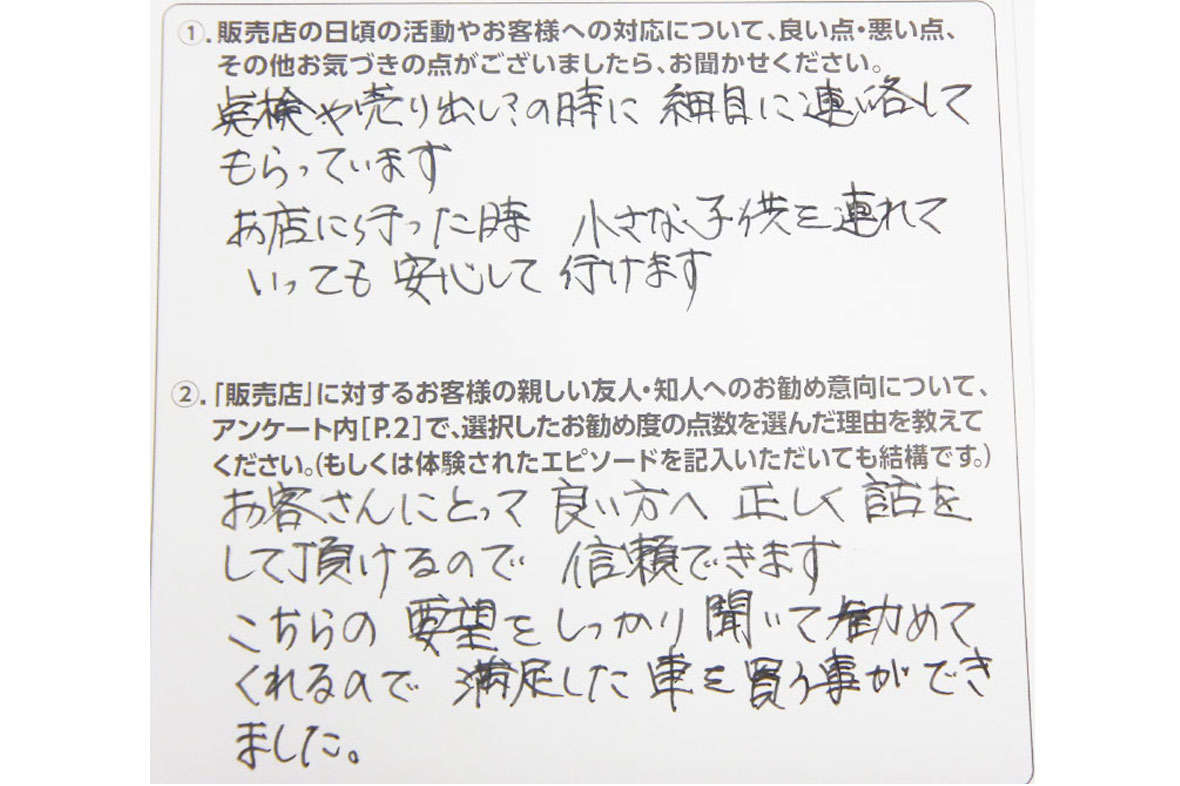 ①.販売店の日頃の活動やお客様への対応について、良い点・悪い点、
その他お気づきの点がございましたら、お聞かせください。
点検や売り出し?の時に 細目に連絡して
もらっています
お店に行った時 小さな子供を連れて
いっても 安心して 行けます
②.「販売店」に対するお客様の親しい友人・知人へのお勧め意向について、
アンケート内[P.2]で、選択したお勧め度の点数を選んだ理由を教えて
ください。(もしくは体験されたエピソードを記入いただいても結構です。)
お客さんにとって 良い方へ 正しく 話を
して頂けるので 信頼できます
こちらの 要望を しっかり 聞いて 勧めて
くれるので 満足した 車を 買う事ができ
ました。